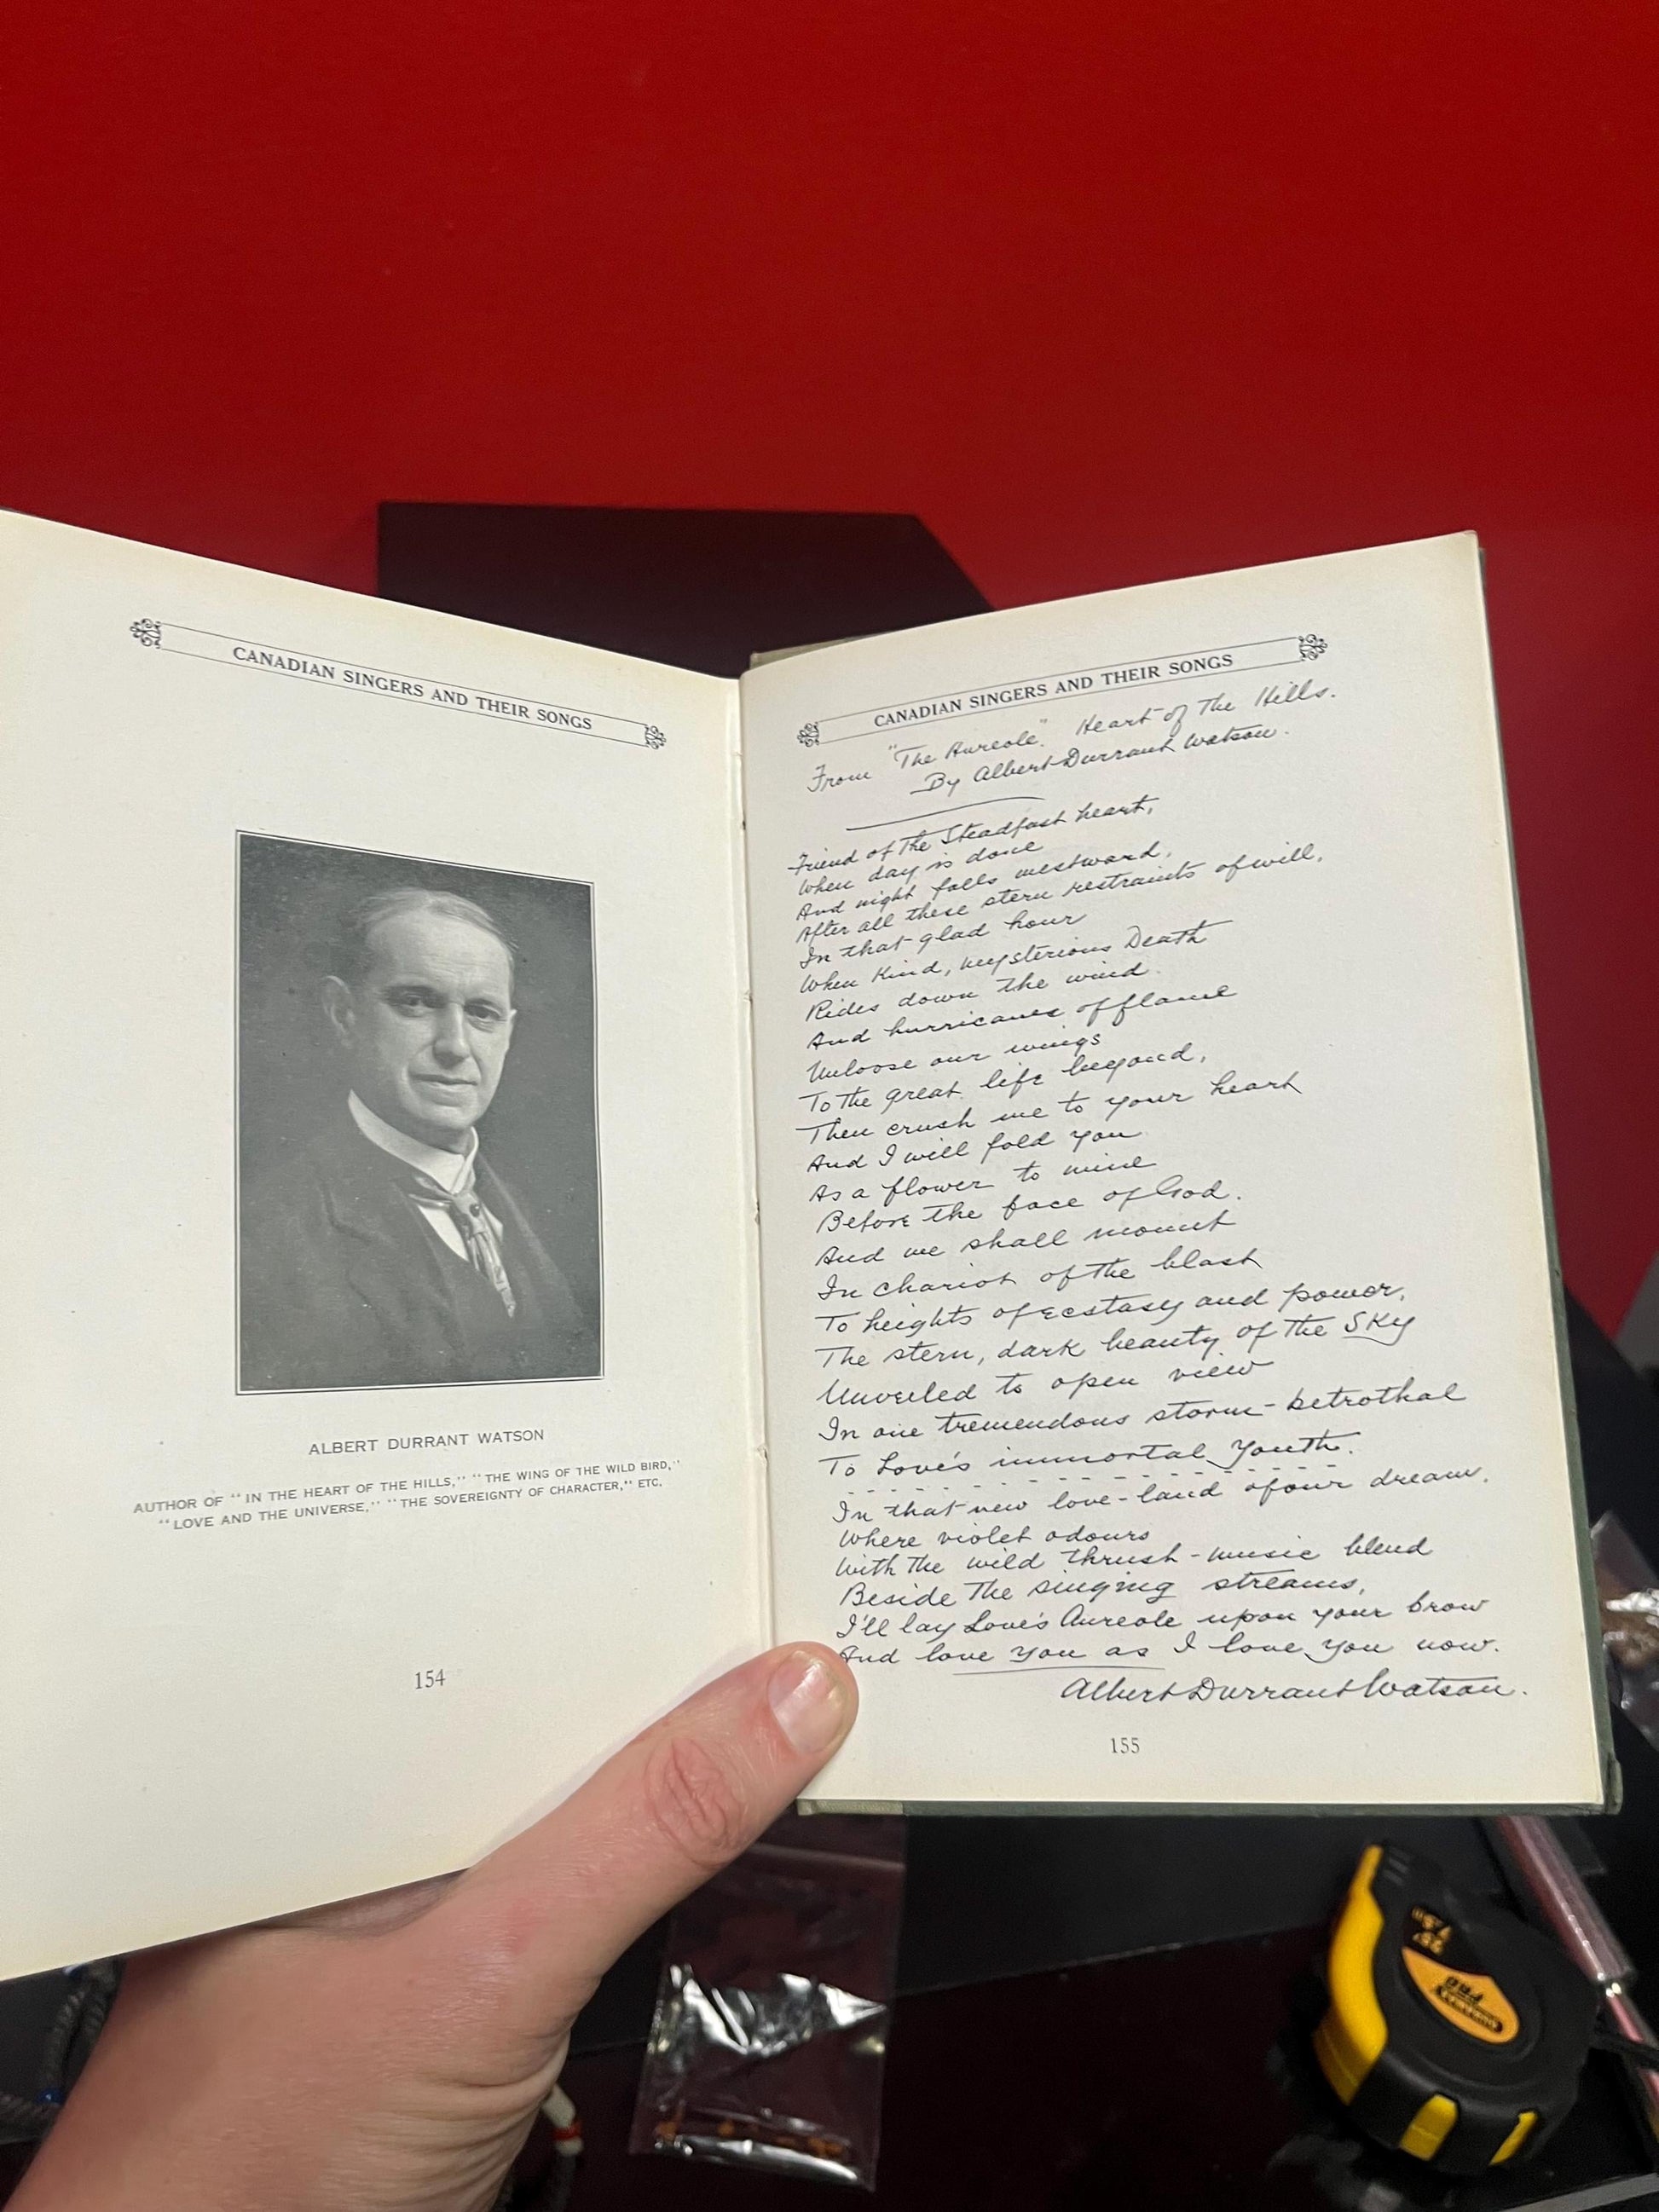 CANADIAN SINGERS AND THEIR SONGS
ALBERT DURRANT WATSON
AUTHOR OF "IN THE HEART OF THE HILLS," "THE WING OF THE WILD BIRD,"
"LOVE AND THE UNIVERSE," "THE SOVEREIGNTY OF CHARACTER," ETC.
154
CANADIAN SINGERS AND THEIR SONGS
From "The Aureole." Heart of The Hills.
By Albert Durrant Watson.
Friend of The Steadfast heart,
When day is done
And night falls westward,
After all these stern restraints of will,
In that glad hour
When Kind, mysterious Death
Rides down the wind
And hurricanes of flame
Unloose our wings
To the great life beyond,
Then crush me to your heart
And I will fold you
As a flower to mine
Before the face of God.
And we shall mount
In chariot of the blast
To heights of ecstasy and power,
The stern, dark beauty of the Sky
Unveiled to open view
In one tremendous storm-betrothal
To Love's immortal Youth.
In that new love-land of our dream,
Where violet odours
With The wild thrush-music blend
Beside The singing streams,
I'll lay Love's Aureole upon your brow
And love you as I love you now.
Albert Durrant Watson.
155
25'
7.5m
PRO